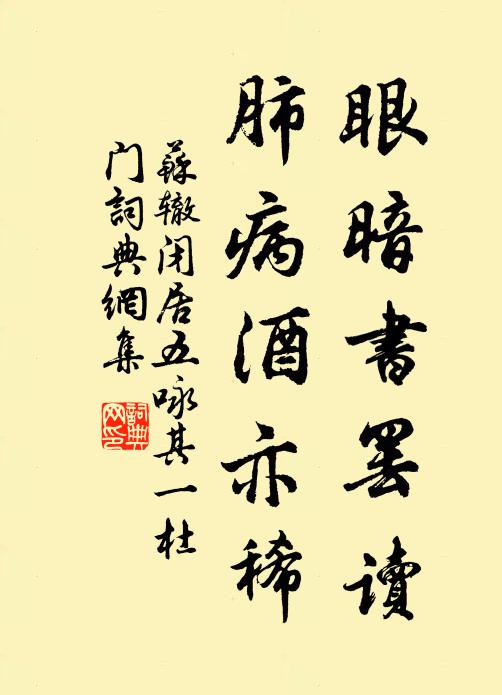 眼暗書罢讀
肺病酒亦稀
蘇辙闭居五咏其一杜
门詞典網集
詞典网印